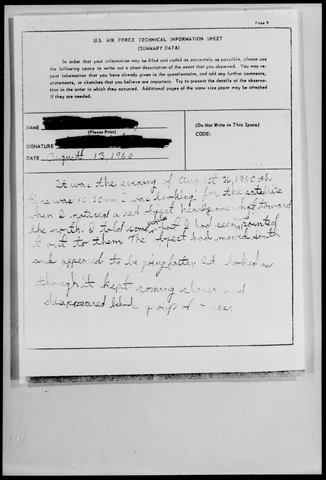 Page 9
U.S. AIR FORCE TECHNICAL INFORMATION SHEET
(SUMMARY DATA)
In order that your information may be filed and coded as accurately as possible, please use
the following space to write out a short description of the event that you observed. You may re-
peat information that you have already given in the questionnaire, and add any further comments,
statements, or sketches that you believe are important. Try to present the details of the observation
in the order in which they occurred. Additional pages of the same size paper may be attached
if they are needed.
NAME
(Please Print)
SIGNATURE
DATE August 13, 1960
(Do Not Write in This Space)
CODE:
It was the evening of August 26, 1960 the
time was 10:20 I was looking for the satellite
when I noticed a red object heading somewhat toward
the north. I told some what I had seen pointed
it out to them. The object had moved south
and appeared to be going faster. It looked as
though it kept coming closer and
disappeared behind a group of trees.